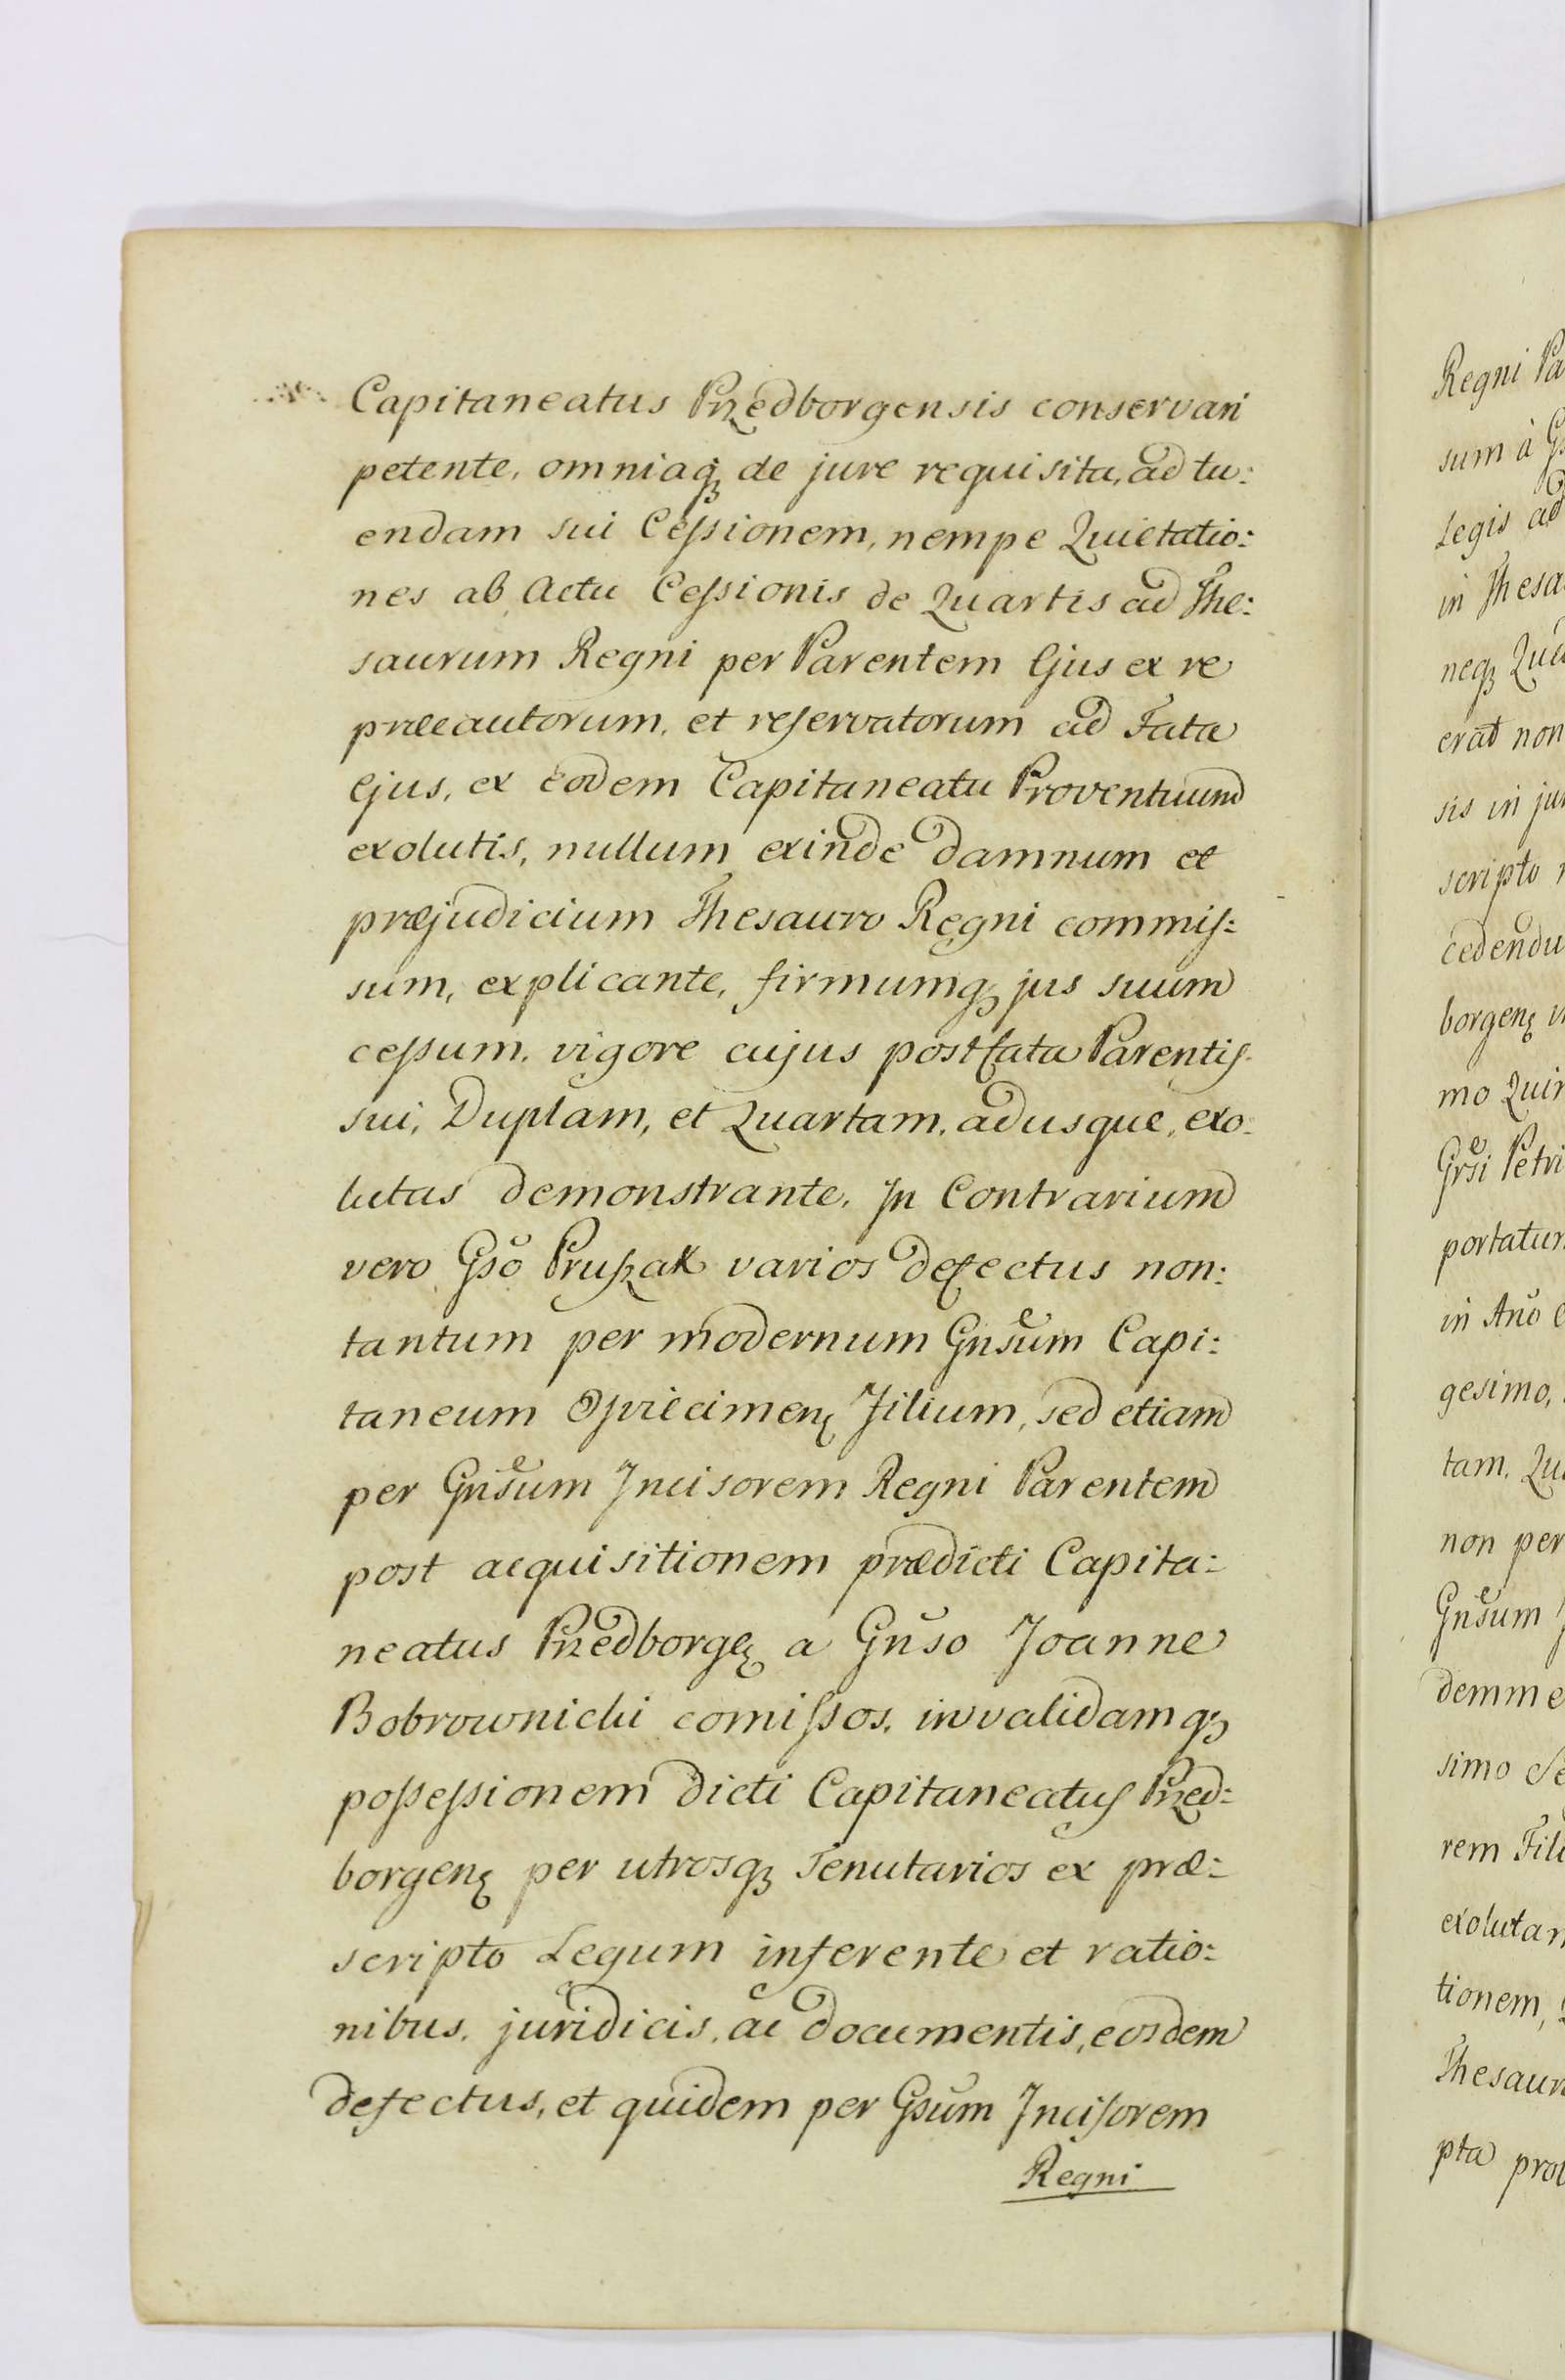 Capitaneatus Przedborgensis conservari
petente, omniaqꝫ de jure requisita, ad tu:
endam sui Cessionem, nempe Quietatio:
nes ab Actu Cessionis de Quartis ad The:
saurum Regni per Parentem Ejus ex re
præcautorum, et reservatorum ad Fata
Ejus, ex eodem Capitaneatu Proventuum
exolutis, nullum exinde damnum et
præjudicium Thesauro Regni commis:
sum, explicante, firmumqꝫ jus suum
cessum, vigore cujus post fata Parentis
sui, Duplam, et Quartam, adusque, exo:
lutas demonstrante. In Contrarium
vero Gsō Pruszak varios defectus non:
tantum per modernum Gnsum Capi:
taneum Filium, sed etiam
per Gnsum Incisorem Regni Parentem
post acquisitionem prædicti Capita:
neatus Przedborgę a Gnso Joanne
Bobrownicki comissos, invalidamqꝫ
possessionem dicti Capitaneatus Przed:
borgenę per utrosqꝫ Tenutarios ex præ:
scripto Legum inferente et ratio:
nibus, juridicis, ac documentis, eosdem
defectus, et quidem per Gsum Incisorem
Regni
Regni
sum à
Legis ad
in Thesa
neqꝫ
erat non
sis in
scripto
cedendu
borgenę
mo
Petri
portatur
in Anō
gesimo,
tam,
non per
Gnsum
demme
simo
rem Fili
exolutam
tionem,
Thesaur
pta